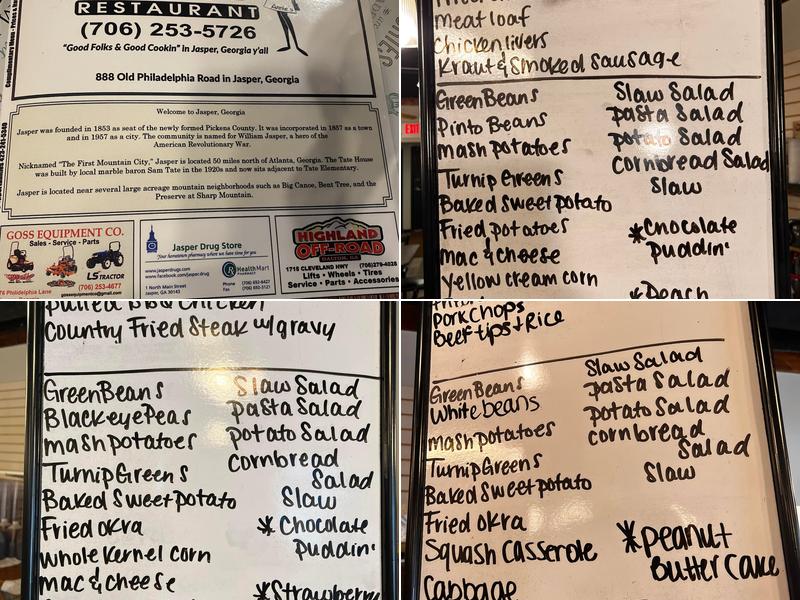 RESTAURANT
(706) 253-5726
"Good Folks & Good Cookin" in Jasper, Georgia y'all
888 Old Philadelphia Road in Jasper, Georgia
Welcome to Jasper, Georgia
Jasper was founded in 1853 as seat of the newly formed Pickens County. It was incorporated in 1857 as a town
and in 1957 as a city. The community is named for William Jasper, a hero of the
American Revolutionary War.
Nicknamed "The First Mountain City," Jasper is located 50 miles north of Atlanta, Georgia. The Tate House
was built by local marble baron Sam Tate in the 1920s and now sits adjacent to Tate Elementary.
Jasper is located near several large acreage mountain neighborhoods such as Big Canoe, Bent Tree, and the
Preserve at Sharp Mountain.
GOSS EQUIPMENT CO.
Sales - Service - Parts
LS TRACTOR
(706) 253-4677
Philadelphia Lane
gossequipmentco@gmail.com
Jasper Drug Store
Your hometown pharmacy where we have time for you
www.jasperdrugs.com
www.facebook.com/jasperdrug
HealthMart
PHARMACY
1 North Main Street
Jasper, GA 30143
Phone
Fax
HIGHLAND
OFF-ROAD
DALTON, GA
1715 CLEVELAND HWY (706)279-4028
Lifts • Wheels • Tires
Service • Parts • Accessories
meat loaf
Chicken livers
Kraut & Smoked Sausage
Green Beans
Pinto Beans
mash potatoes
Turnip Greens
Baked sweet potato
Fried potatoes
mac & cheese
yellow cream corn
Slaw Salad
pasta Salad
potato Salad
cornbread Salad
Slaw
*Chocolate
puddin'
*Peach
EXIT
Pulled BBQ Chicken
Country Fried Steak w/gravy
Green Beans
Blackeye Peas
mash potatoes
Turnip Greens
Baked Sweet potato
Fried okra
whole Kernel corn
mac & cheese
Slaw Salad
pasta Salad
potato Salad
cornbread
Salad
Slaw
* Chocolate
puddin'
*Strawberry
Pork Chops
Beef tips + Rice
Green Beans
White beans
mash potatoes
Turnip Greens
Baked Sweet potato
Fried okra
Squash Casserole
Cabbage
Slaw Salad
pasta Salad
potato Salad
cornbread
Salad
Slaw
*peanut
Butter Cake